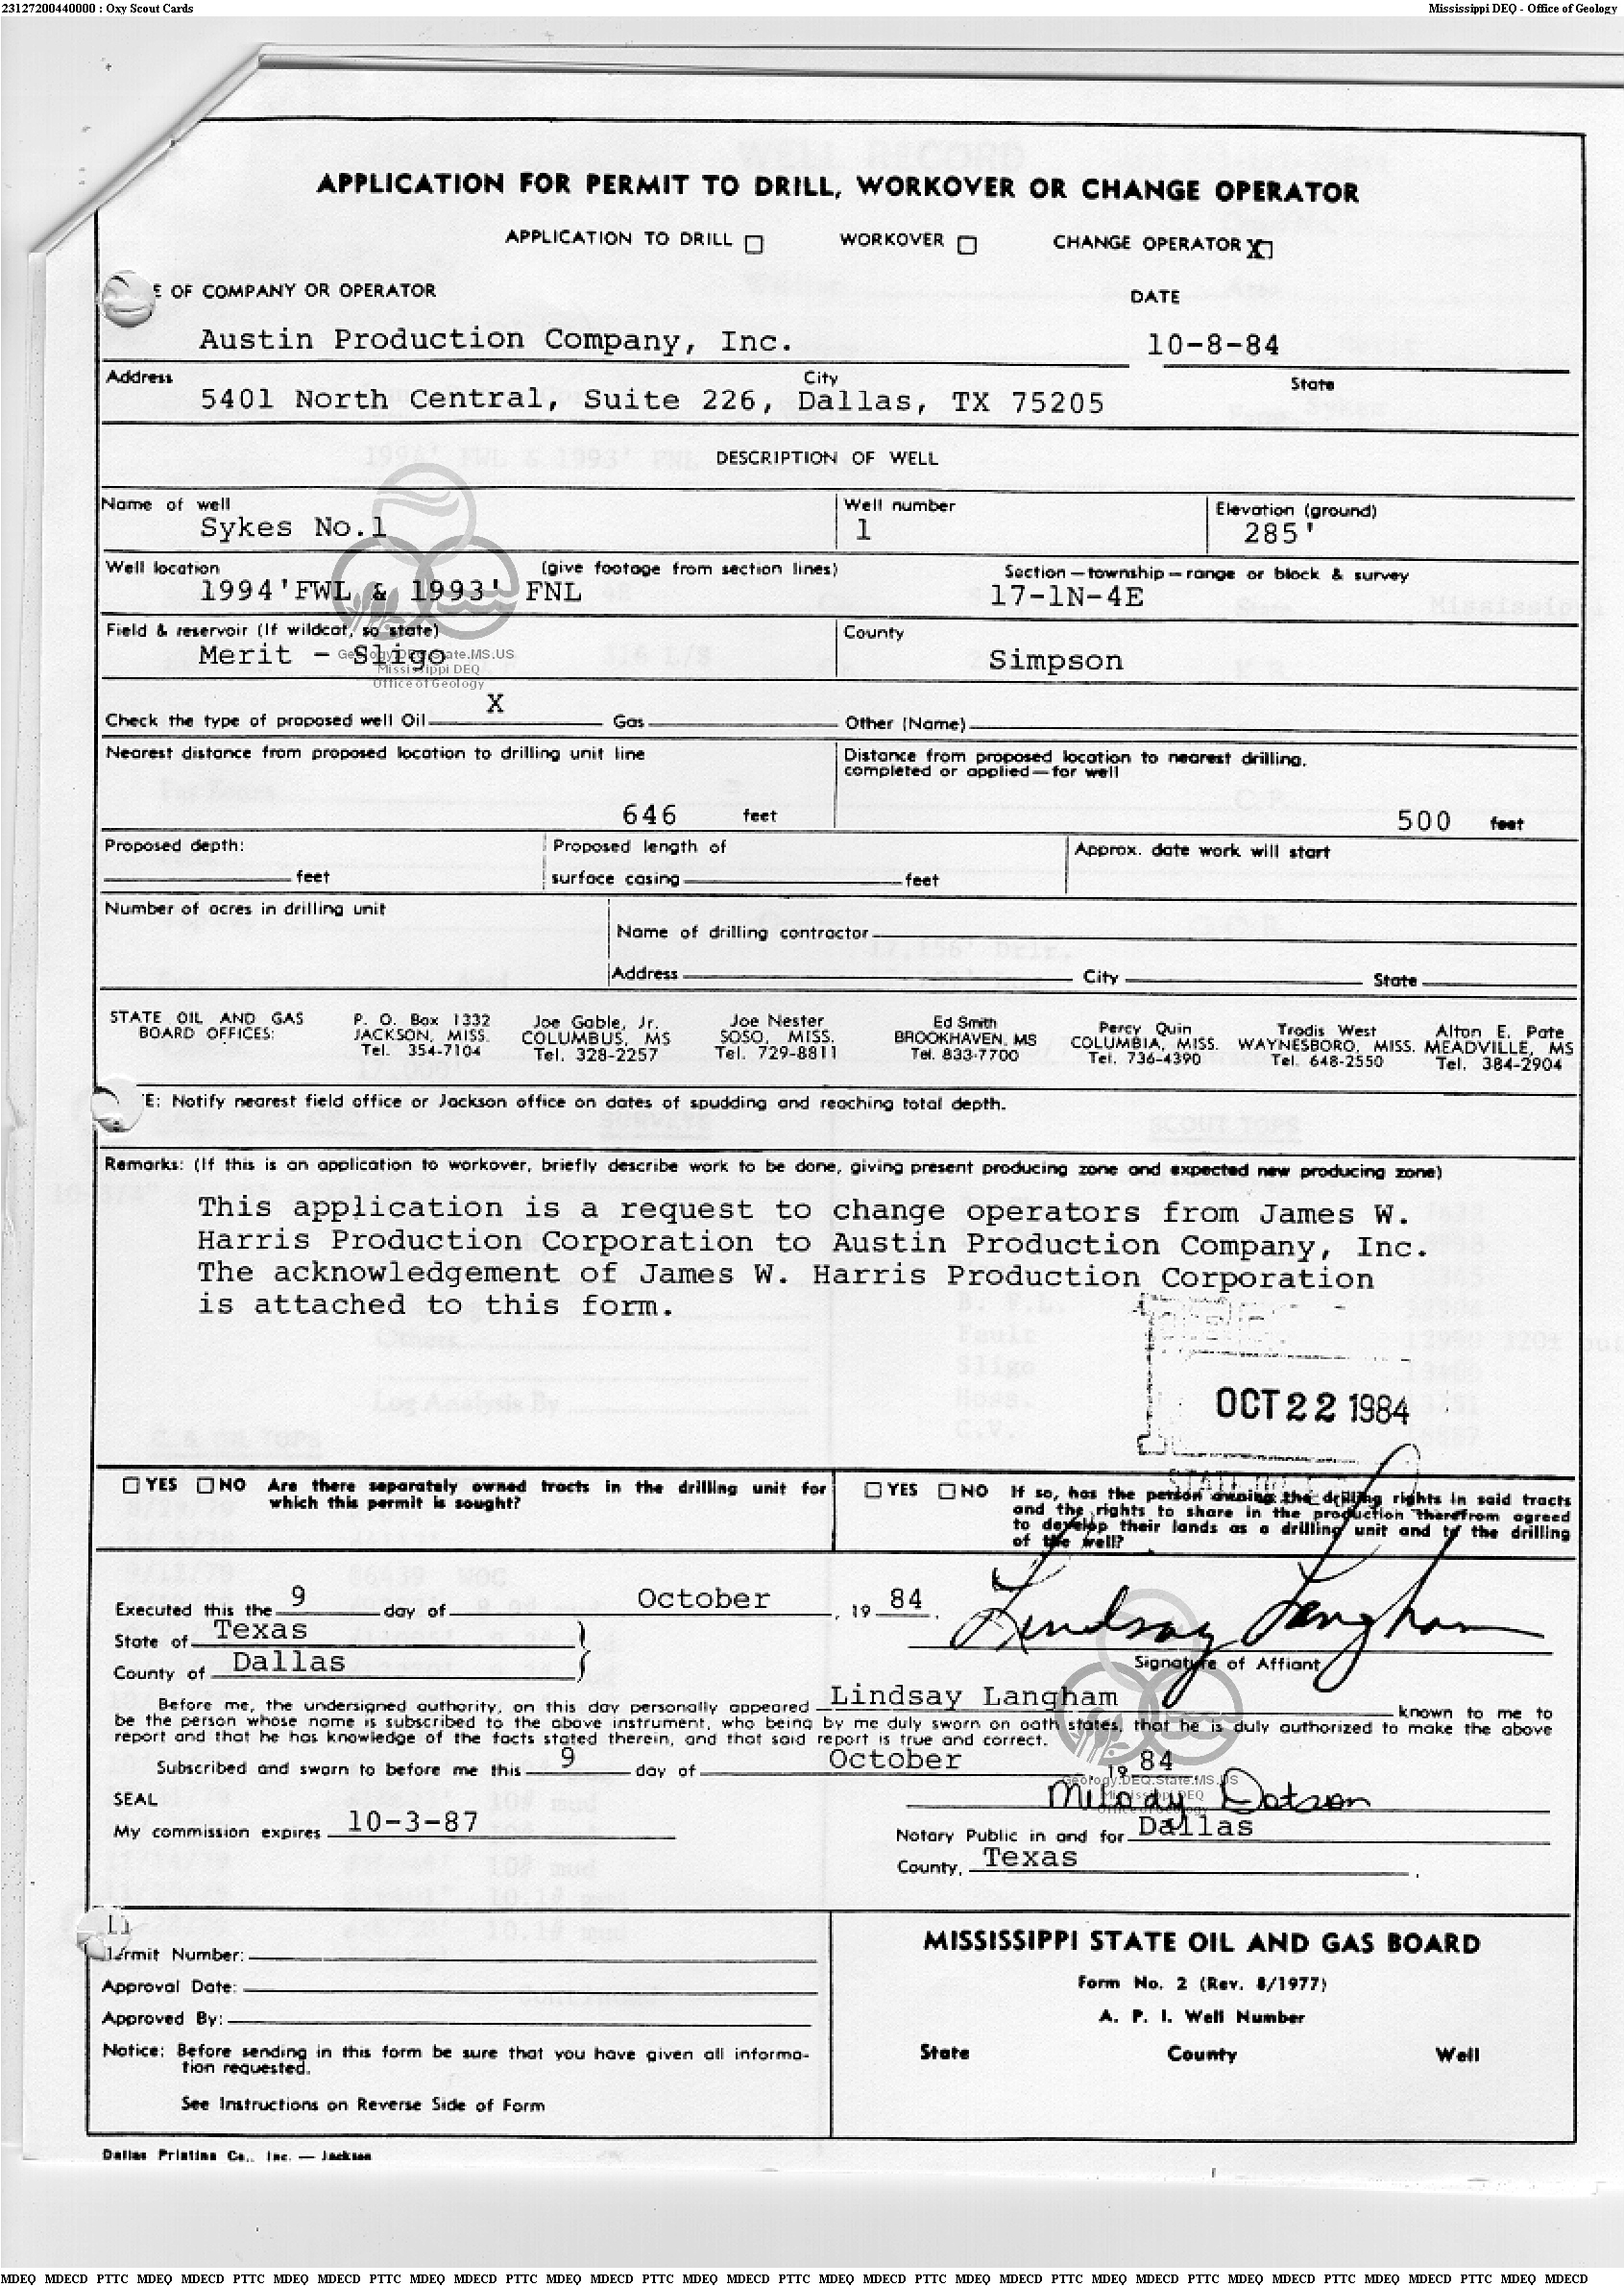 23127200440000 : Oxy Scout Cards Mississippi DEQ - Office of Geology
APPLICATION FOR PERMIT TO DRILL, WORKOVER OR CHANGE OPERATOR
APPLICATION TO DRILL □ WORKOVER □ CHANGE OPERATOR X
E OF COMPANY OR OPERATOR DATE
Austin Production Company, Inc. 10-8-84
Address City State
5401 North Central, Suite 226, Dallas, TX 75205
DESCRIPTION OF WELL
Name of well Well number Elevation (ground)
Sykes No.1 1 285'
Well location (give footage from section lines) Section—township—range or block & survey
1994'FWL & 1993' FNL 17-1N-4E
Field & reservoir (If wildcat, so state) County
Merit - Sligo Simpson
Geology.DEQ.State.MS.US
Mississippi DEQ
Office of Geology
X
Check the type of proposed well Oil Gas Other (Name)
Nearest distance from proposed location to drilling unit line Distance from proposed location to nearest drilling,
completed or applied—for well
646 feet 500 feet
Proposed depth: Proposed length of Approx. date work will start
feet surface casing feet
Number of acres in drilling unit
Name of drilling contractor
Address City State
STATE OIL AND GAS P. O. Box 1332 Joe Gable, Jr. Joe Nester Ed Smith Percy Quin Trodis West Alton E. Pate
BOARD OFFICES: JACKSON, MISS. COLUMBUS, MS SOSO, MISS. BROOKHAVEN, MS COLUMBIA, MISS. WAYNESBORO, MISS. MEADVILLE, MS
Tel. 354-7104 Tel. 328-2257 Tel. 729-8811 Tel. 833-7700 Tel. 736-4390 Tel. 648-2550 Tel. 384-2904
E: Notify nearest field office or Jackson office on dates of spudding and reaching total depth.
Remarks: (If this is an application to workover, briefly describe work to be done, giving present producing zone and expected new producing zone)
This application is a request to change operators from James W.
Harris Production Corporation to Austin Production Company, Inc.
The acknowledgement of James W. Harris Production Corporation
is attached to this form.
OCT 22 1984
□ YES □ NO Are there separately owned tracts in the drilling unit for which this permit is sought?
□ YES □ NO If so, has the person owning the drilling rights in said tracts
and the rights to share in the production therefrom agreed
to develop their lands as a drilling unit and to the drilling
of the well?
Executed this the 9 day of October, 19 84.
State of Texas
County of Dallas
Lindsay Langham
Signature of Affiant
Before me, the undersigned authority, on this day personally appeared Lindsay Langham known to me to
be the person whose name is subscribed to the above instrument, who being by me duly sworn on oath states, that he is duly authorized to make the above
report and that he has knowledge of the facts stated therein, and that said report is true and correct.
Subscribed and sworn to before me this 9 day of October 19 84.
Geology.DEQ.State.MS.US
Mississippi DEQ
Office of Geology
SEAL Melody Dotson
My commission expires 10-3-87 Notary Public in and for Dallas
County, Texas.
Permit Number:
Approval Date:
Approved By:
Notice: Before sending in this form be sure that you have given all informa-
tion requested.
See Instructions on Reverse Side of Form
MISSISSIPPI STATE OIL AND GAS BOARD
Form No. 2 (Rev. 8/1977)
A. P. I. Well Number
State County Well
Dallas Printing Co., Inc. — Jackson
MDEQ MDECD PTTC MDEQ MDECD PTTC MDEQ MDECD PTTC MDEQ MDECD PTTC MDEQ MDECD PTTC MDEQ MDECD PTTC MDEQ MDECD PTTC MDEQ MDECD PTTC MDEQ MDECD PTTC MDEQ MDECD PTTC MDEQ MDECD PTTC MDEQ MDECD